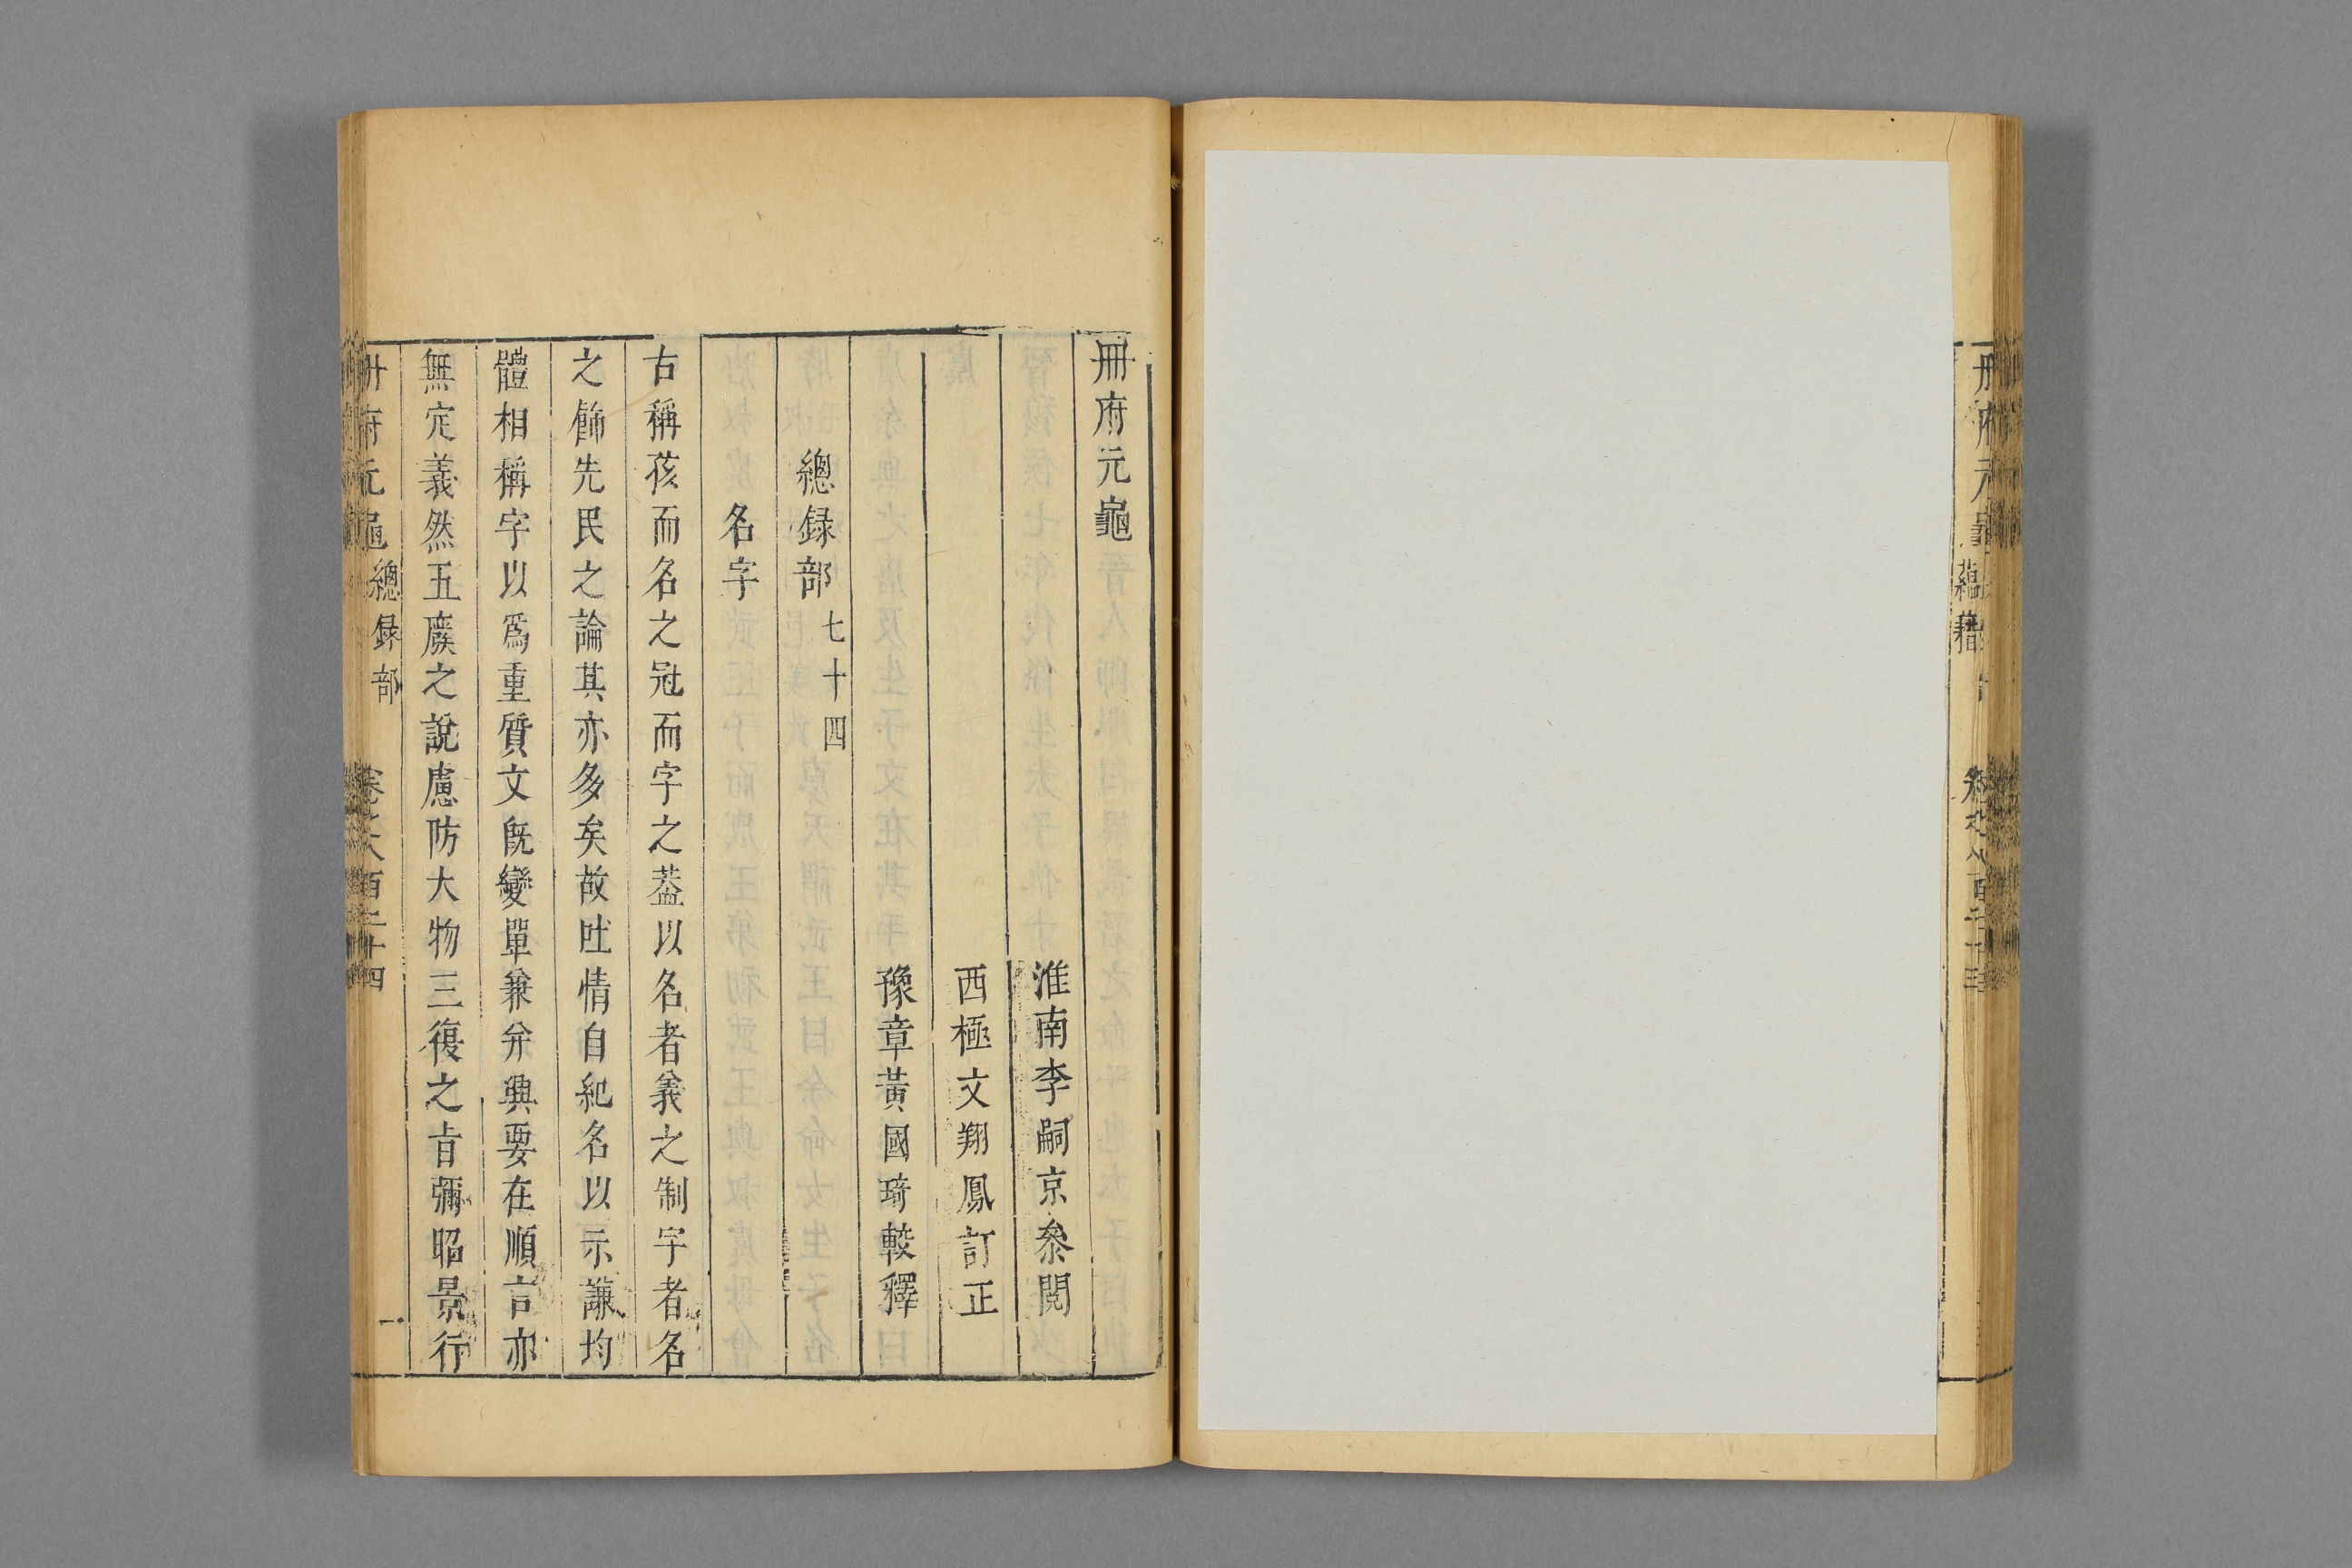 冊府元龜
淮南李嗣京叅閱
西極文翔鳳訂正
豫章黃國琦較釋
總録部 七十四
名字
古稱孩而名之冠而字之葢以名者義之制字者名
之餙先民之論其亦多矣故吐情自紀名以示謙均
體相稱字以爲重質文旣變單兼分興要在順言亦
無定義然五廢之說慮防大物三復之㫖彌昭景行
冊府元龜 總録部 卷之八百二十四 一